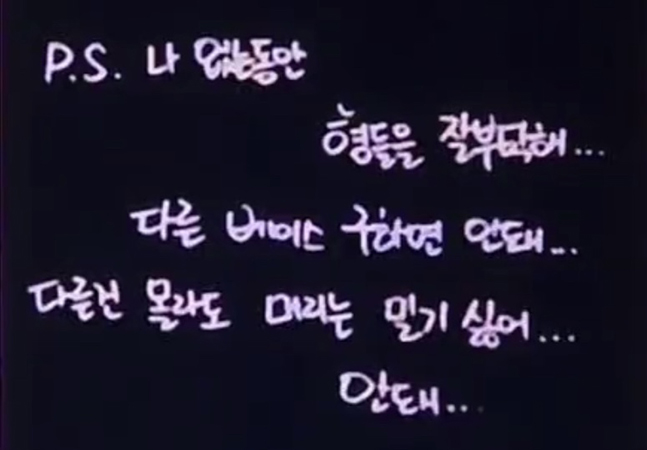 P.S. 나 없는동안
형들을 잘부탁해...
다른 베이스 구하면 안돼...
다른건 몰라도 머리는 밀기 싫어...
안돼...